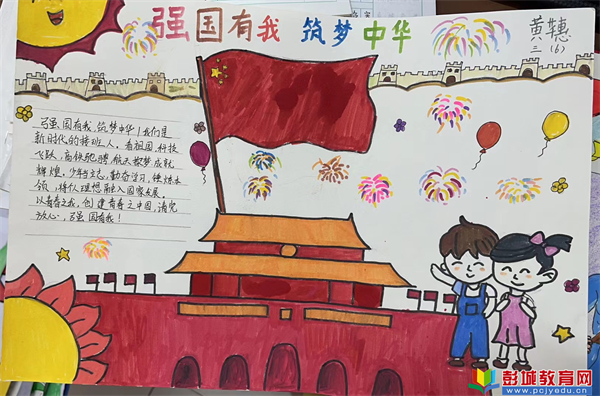 强国有我 筑梦中华
黄蕙
三(6)
强国有我,筑梦中华!我们是
新时代的接班人。看祖国,科技
飞跃,高铁驰骋,航天揽梦成就
辉煌。少年立志,勤奋学习,锤炼本
领,将个人理想融入国家发展。
以青春之我,创建青春之中国,请党
放心,强国有我!
彭城教育网
www.pcjyedu.cn